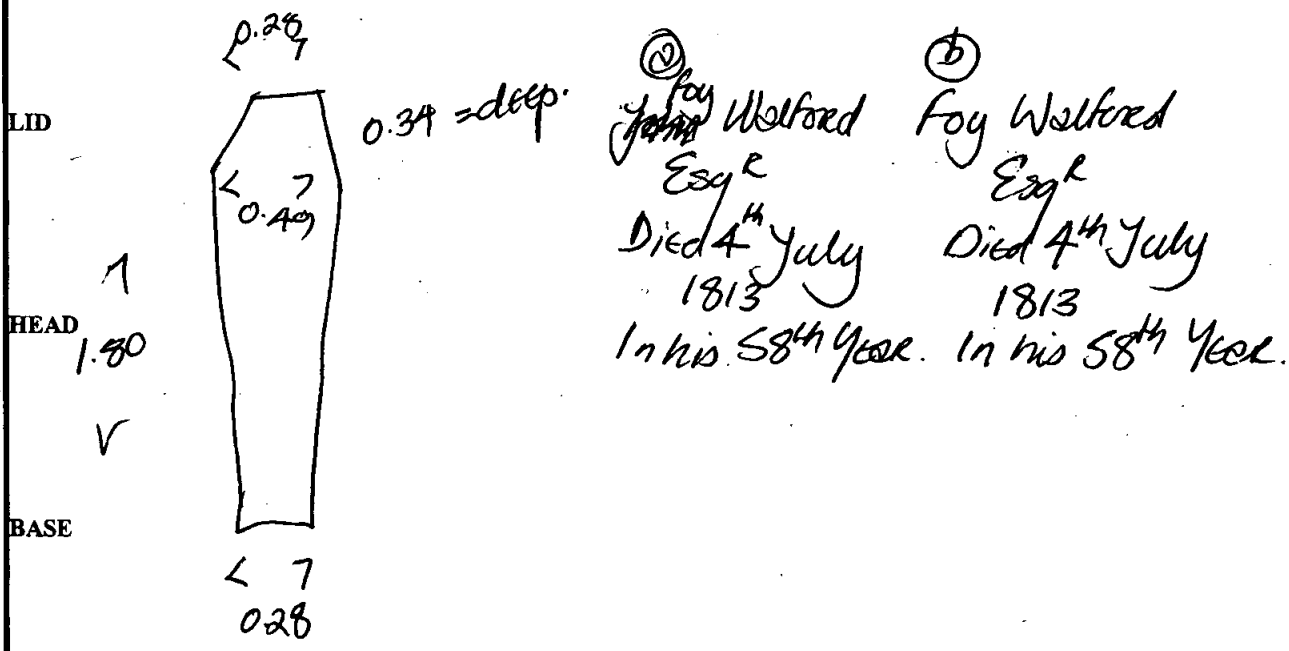 0.28
LID
0.34 = deep.
0.49
HEAD
1.80
BASE
0.28
(a)
Foy Walford
Esq R
Died 4th July
1813
In his 58th Year.
(b)
Foy Walford
Esq R
Died 4th July
1813
In his 58th Year.